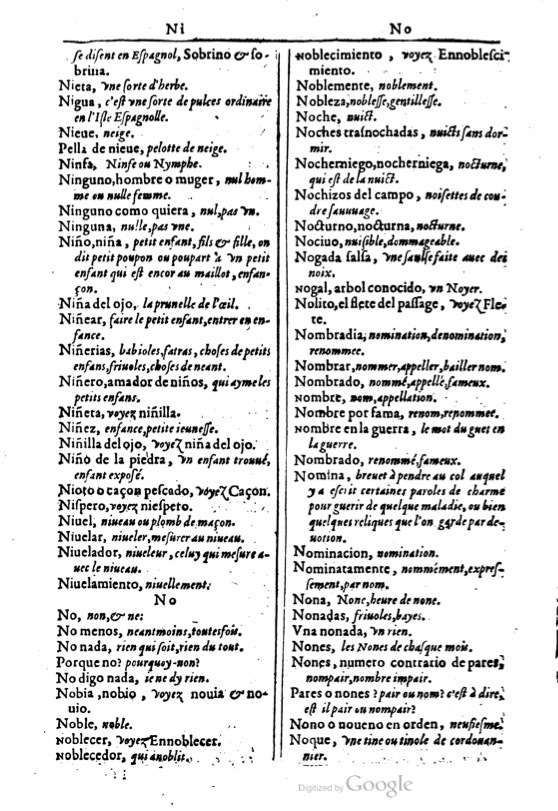 Ni
se disent en Espagnol, Sobrino & so-
brina.
Nieta, vne sorte d'herbe.
Nigua, c'est vne sorte de pulces ordinaire
en l'Isle Espagnolle.
Nieue, neige.
Pella de nieue, pelotte de neige.
Ninfa, Ninfe ou Nymphe.
Ninguno, hombre o muger, nul hom-
me ou nulle femme.
Ninguno como quiera, nul, pas vn.
Ninguna, nulle, pas vne.
Niño, niña, petit enfant, fils & fille, on
dit petit poupon ou poupart à vn petit
enfant qui est encor au maillot, enfan-
çon.
Niña del ojo, la prunelle de l'œil.
Niñear, faire le petit enfant, entrer en en-
fance.
Niñerias, babioles, fatras, choses de petits
enfans, friuoles, choses de neant.
Niñero, amador de niños, qui ayme les
petits enfans.
Niñeta, voyez niñilla.
Niñez, enfance, petite ieunesse.
Niñilla del ojo, voyez niña del ojo.
Niño de la piedra, vn enfant trouué,
enfant exposé.
Nioto o caçon pescado, voyez Caçon.
Nispero, voyez niespeto.
Niuel, niueau ou plomb de maçon.
Niuelar, niueler, mesurer au niueau.
Niuelador, niueleur, celuy qui mesure a-
uec le niueau.
Niuelamiento, niuellement.
No
No, non, & ne:
No menos, neantmoins, toutesfois.
No nada, rien qui soit, rien du tout.
Porque no? pourquoy-non?
No digo nada, ie ne dy rien.
Nobia, nobio, voyez nouia & no-
uio.
Noble, noble.
Noblecer, voyez Ennoblecer.
Noblecedor, qui anoblit.
No
Noblecimiento, voyez Ennobleſci-
miento.
Noblemente, noblement.
Nobleza, noblesse, gentillesse.
Noche, nuict.
Noches trasnochadas, nuicts sans dor-
mir.
Nocherniego, nocherniega, nocturne,
qui est de la nuict.
Nochizos del campo, noisettes de cou-
dre sauuage.
Nocturno, nocturna, nocturne.
Nociuo, nuisible, dommageable.
Nogada salsa, vne saulse faite auec des
noix.
Nogal, arbol conocido, vn Noyer.
Nolito, el flete del passage, voyez Fle-
te.
Nombradia, nomination, denomination,
renommee.
Nombrar, nommer, appeller, bailler nom.
Nombrado, nommé, appellé, fameux.
Nombre, nom, appellation.
Nombre por fama, renom, renommee.
Nombre en la guerra, le mot du guet en
la guerre.
Nombrado, renommé, fameux.
Nomina, breuet à pendre au col auquel
y a escrit certaines paroles de charme
pour guerir de quelque maladie, ou bien
quelques reliques que l'on garde par de-
uotion.
Nominacion, nomination.
Nominatamente, nommément, expres-
sement, par nom.
Nona, None, heure de none.
Nonadas, friuoles, bayes.
Vna nonada, vn rien.
Nones, les Nones de chasque mois.
Nones, numero contrario de pares,
nompair, nombre impair.
Pares o nones? pair ou nom? c'est à dire,
est il pair ou nompair?
Nono o noueno en orden, neufiesme.
Noque, vne tine ou tinole de cordouan-
nier.
Digitized by Google